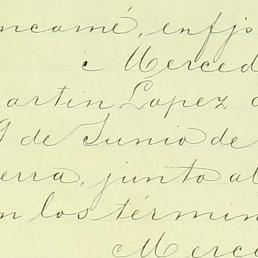 ncamé, enfjo
Merced
artin Lopez
9 de Junio de
erra, junto al
n los términ
Merce